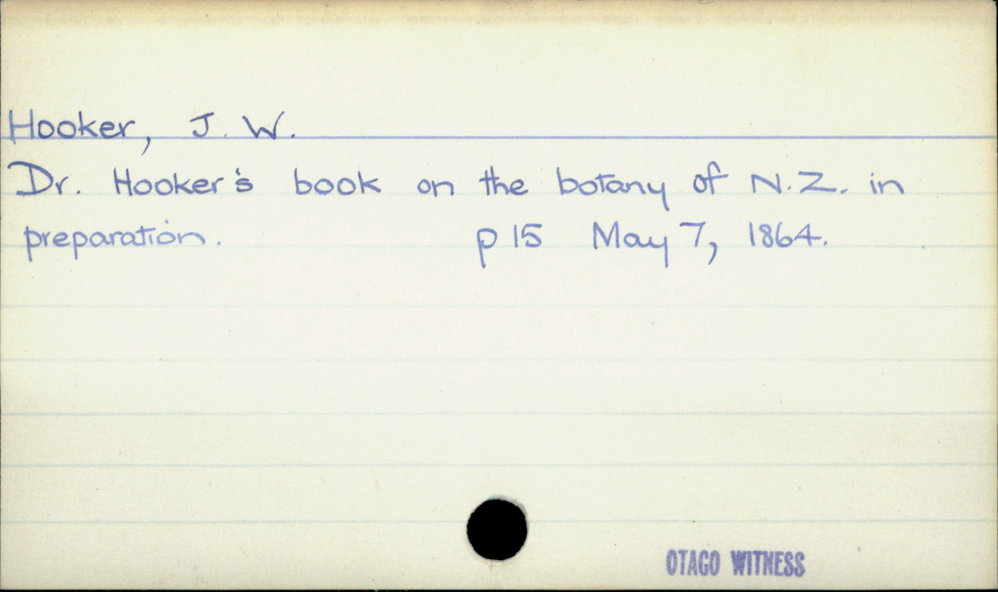 Hooker, J. W.
Dr. Hooker's book on the botany of N.Z. in
preparation. p 15 May 7, 1864.
OTAGO WITNESS